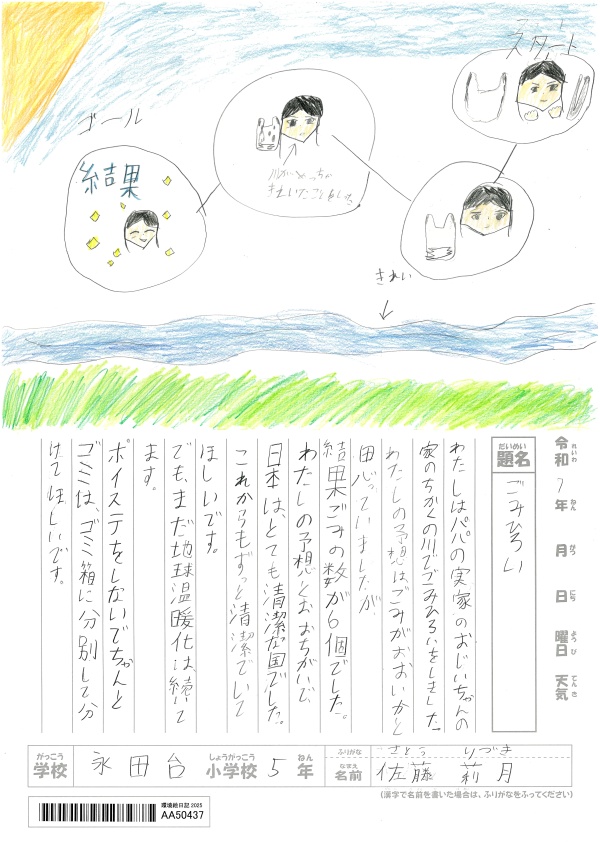 スタート
ゴール
結果
川がめっちゃ
きれいだったことをしった
きれい
令和7年 月 日 曜日 天気
れいわ ねん がつ にち ようび てんき
だいめい
題名
ごみひろい
わたしはパパの実家のおじいちゃんの
家のちかくの川でごみひろいをしました。
わたしの予想は、ごみがおおいかと
思っていましたが、
結果ごみの数が6個でした。
わたしの予想とおおちがいで、
日本は、とても清潔な国でした。
これからもずっと清潔でいて
ほしいです。
でも、まだ地球温暖化は、続いて
ます。
ポイステをしないでちゃんと
ゴミは、ゴミ箱に分別して分
けてほしいです。
がっこう しょうがっこう ねん
学校 永田台 小学校 5年
ふりがな さとう りづき
なまえ
名前 佐藤 莉月
(漢字で名前を書いた場合は、ふりがなをふってください)
環境絵日記 2025
AA50437